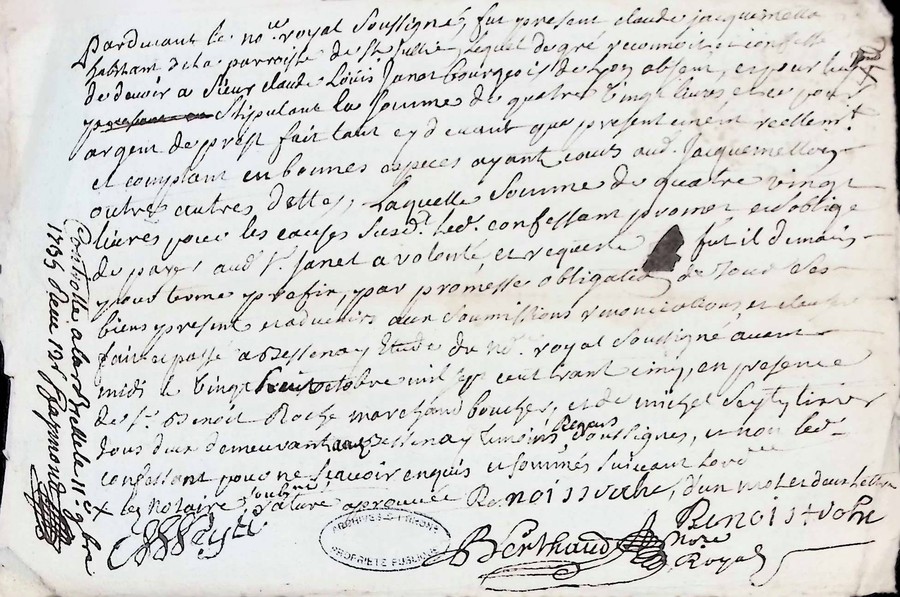 Pardevant le no.re royal soussigné, fut present claude jacquemetton
habitant de la parroisse de St Jullie, lequel de gré reconnoit et confesse
de devoir a Sieur claude Louis Janot bourgeois de Lyon absent, et pour luy
stipulant la somme de quatre vingt livres et ce pour
argent de prest fait tant cy devant que presentement reellem.t
et comptant en bonnes especes ayant cours aud. Jacquemetton
outres autres dettes, Laquelle somme de quatre vingt
livres pour les causes susd. led. confessant promet et oblige
de payer aud. Sr. Janet a volonté et requeste fut il demain
pour terme prefix, par promesse obligation de tous ses
biens present et advenirs aux soumissions renonciations, et clauses
fait et passé a Bessenay Etude du no.re royal soussigné avant
midi le vingt octobre mil sept cent trant cinq, en presence
de Sr. Benoit Roche marchand boucher, et de michel Seytelivier
tous deux demeurant Bessenay temoins Requis soussignes, et non led.
confessant pour ne scavoir enquis et sommés suivant lord.ce
x les Notaire approuvée d'un mot et deux lettres
Benoist roche
Berthaud nore
Royal
ARCHIVES
PROPRIETE PUBLIQUE
Controlle a la Brelle le 11e 9bre
1735 Receu 12s Raymond